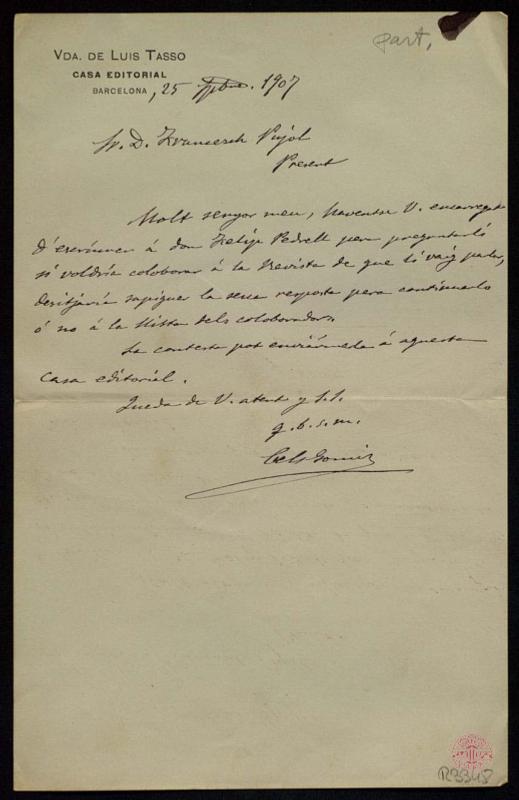 part.
VDA. DE LUIS TASSO
CASA EDITORIAL
BARCELONA, 25 1907
Sr. D. Francesch Pujol
Present
Molt senyor meu, haventse V. encarregat
d'escriurer á don Felip Pedrell pera preguntarli
si voldría colaborar á la Revista de que li vaig parlar,
desitjaría sapiguer la seua resposta pera continuarlo
ó no á la llista dels colaboradors.
La contesta pot enviármela á aquesta
casa editorial.
Queda de V. atent y S.S.
q. b. s. m.
Cels Gomis
R3345